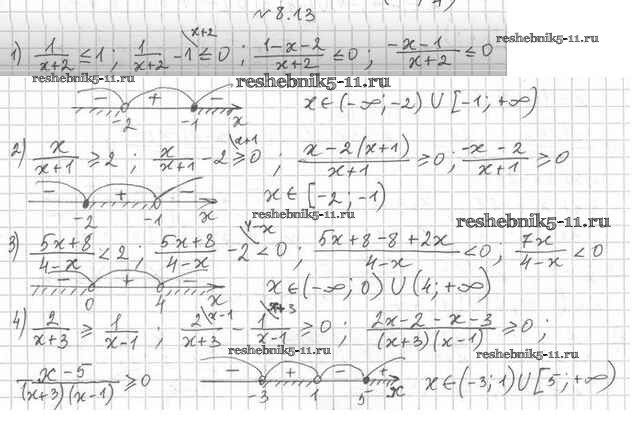 № 8.13
1) 1/(x+2) ≤ 1 ; 1/(x+2) - 1\x+2 ≤ 0 ; (1-x-2)/(x+2) ≤ 0 ; (-x-1)/(x+2) ≤ 0
reshebnik5-11.ru
reshebnik5-11.ru reshebnik5-11.ru
- + - -2 -1 x x ∈ (-∞; -2) ∪ [-1; +∞)
2) x/(x+1) ≥ 2 ; x/(x+1) - 2\x+1 ≥ 0 ; (x-2(x+1))/(x+1) ≥ 0 ; (-x-2)/(x+1) ≥ 0
- + - -2 -1 x x ∈ [-2; -1)
reshebnik5-11.ru reshebnik5-11.ru
3) (5x+8)/(4-x) < 2 ; (5x+8)/(4-x) - 2\4-x < 0 ; (5x+8-8+2x)/(4-x) < 0 ; 7x/(4-x) < 0
- + - 0 4 x x ∈ (-∞; 0) ∪ (4; +∞)
reshebnik5-11.ru reshebnik5-11.ru
4) 2/(x+3) ≥ 1/(x-1) ; 2\x-1/(x+3) - 1\x+3/(x-1) ≥ 0 ; (2x-2-x-3)/((x+3)(x-1)) ≥ 0 ;
reshebnik5-11.ru reshebnik5-11.ru
(x-5)/((x+3)(x-1)) ≥ 0 - + - + -3 1 5 x x ∈ (-3; 1) ∪ [5; +∞)
reshebnik5-11.ru